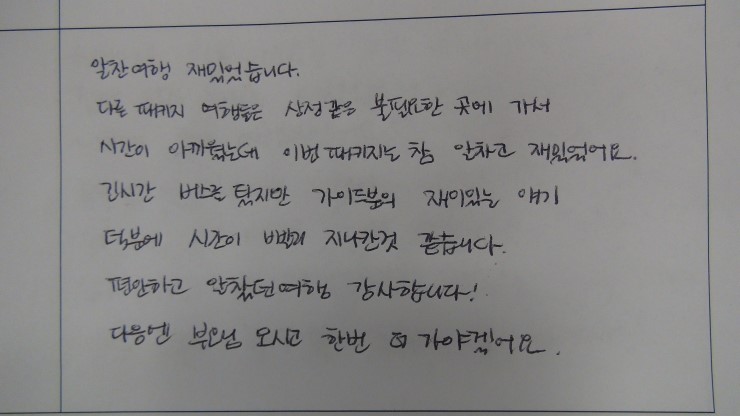 알찬여행 재밌었습니다.
다른 패키지 여행들은 상점같은 불필요한 곳에 가서
시간이 아까웠는데 이번 패키지는 참 알차고 재밌었어요.
긴시간 버스를 탔지만 가이드분의 재미있는 얘기
덕분에 시간이 빨리 지나간것 같습니다.
편안하고 알찼던여행 감사합니다!
다음엔 부모님 모시고 한번 더 가야겠어요.